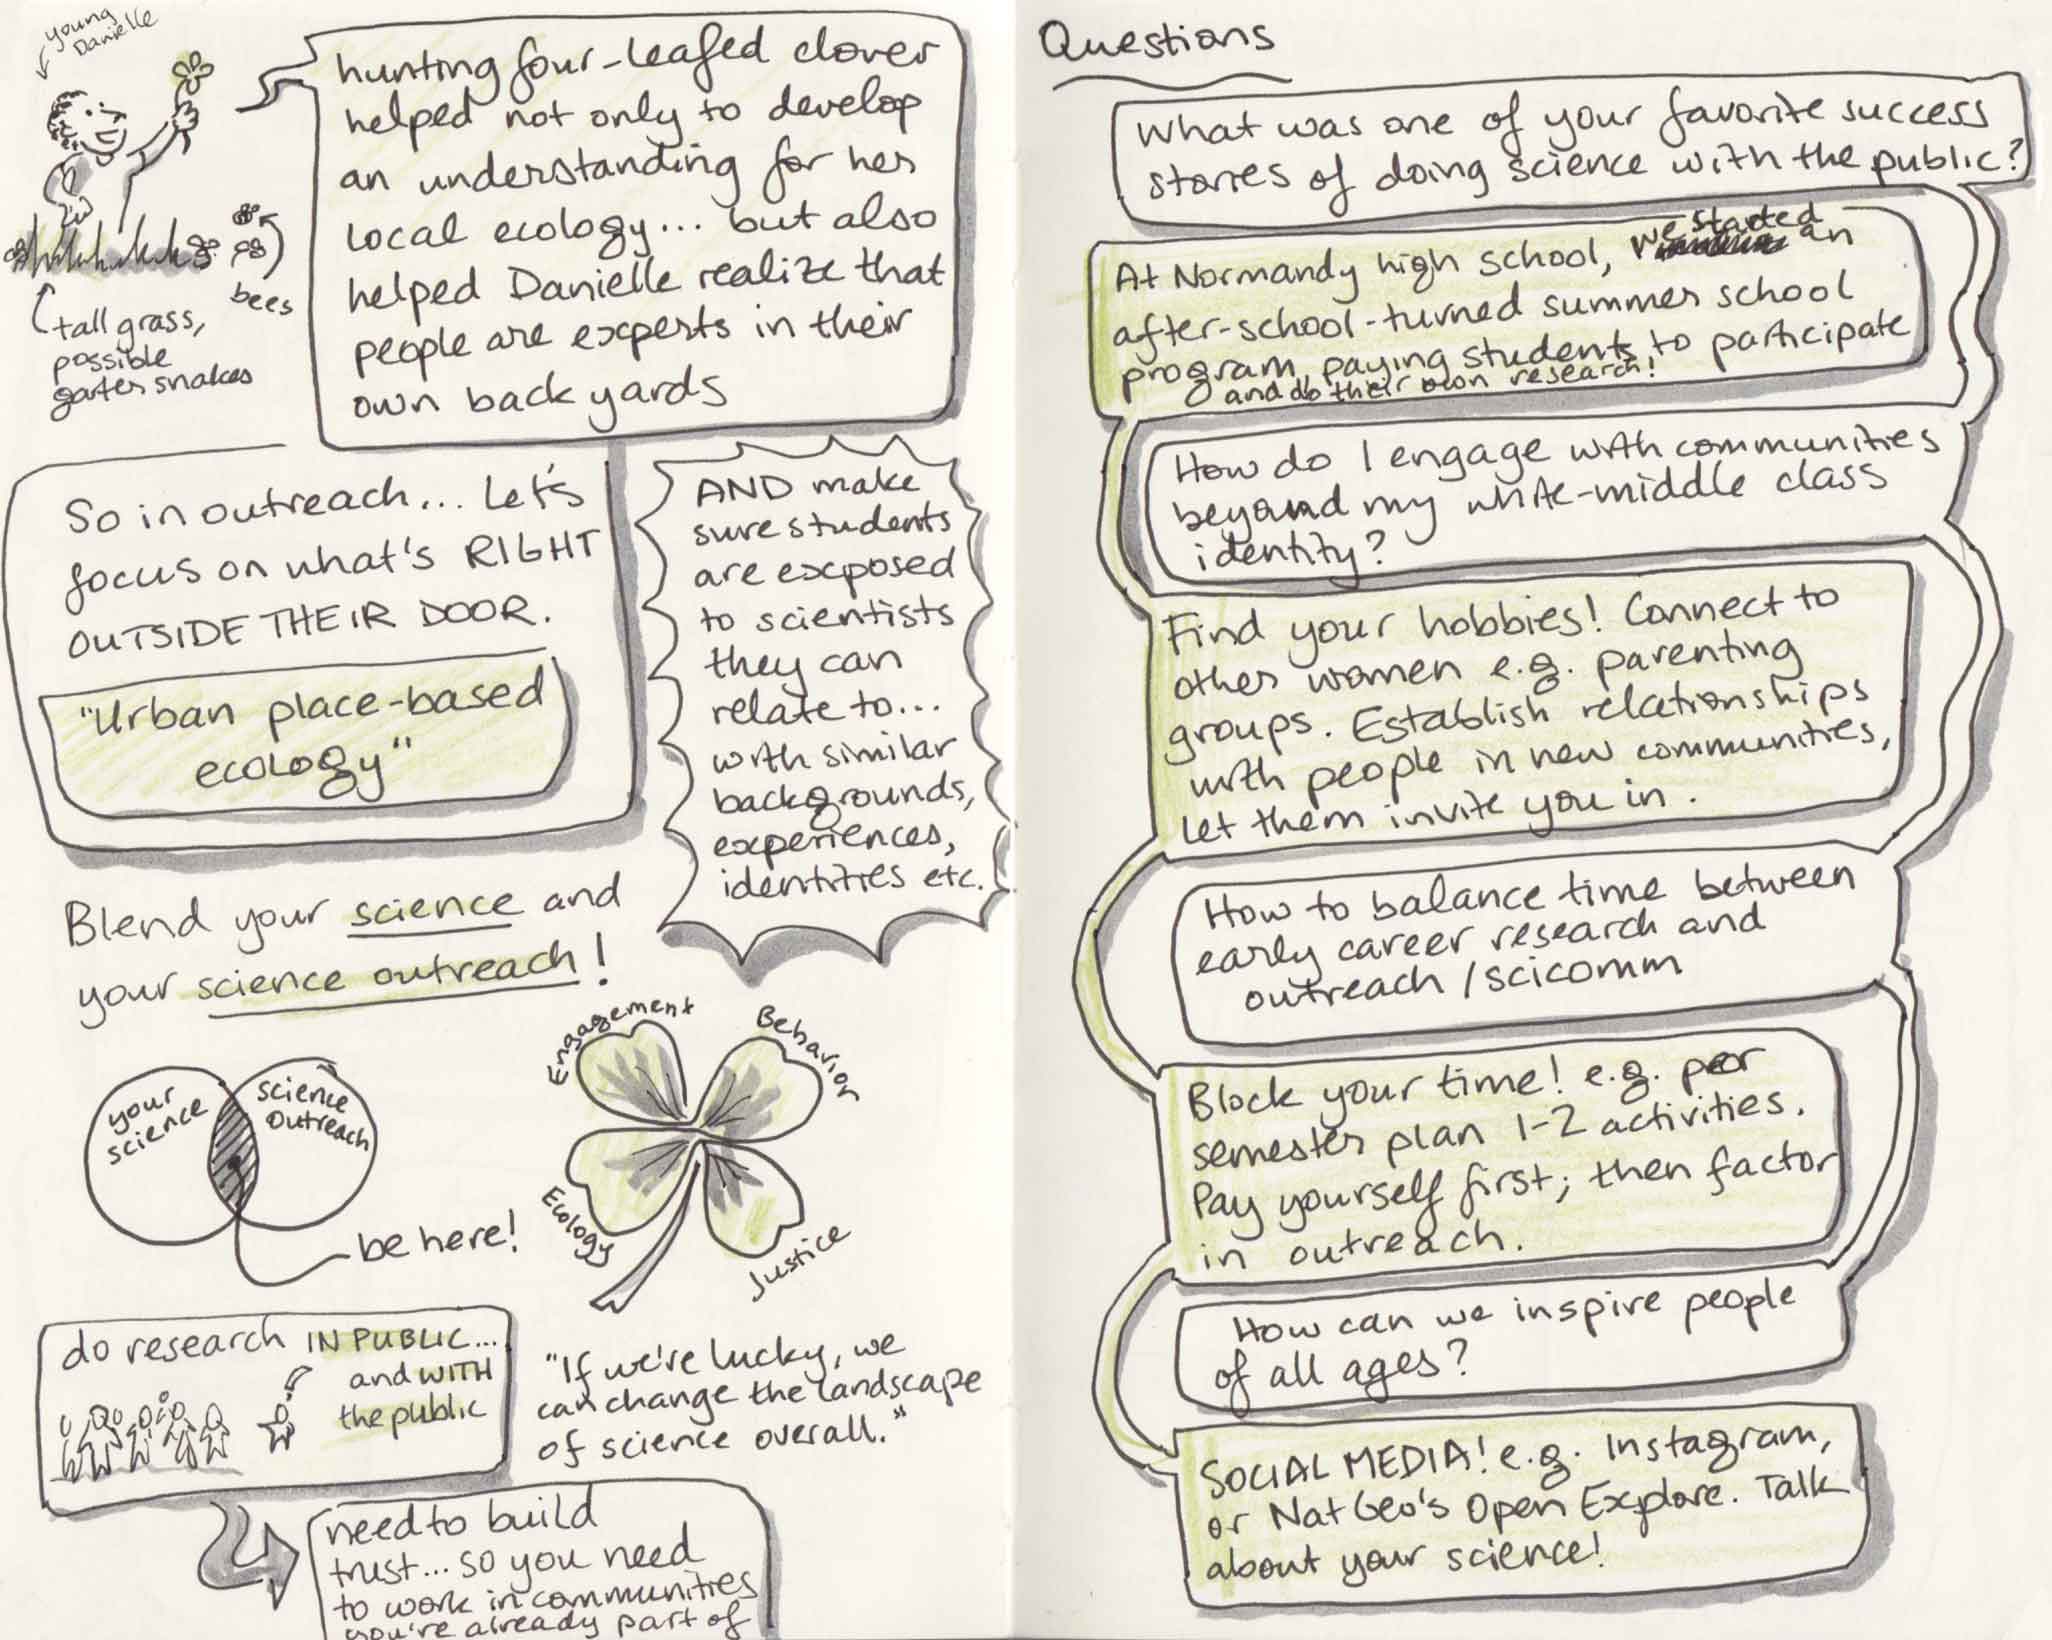 young
Danielle
hunting four-leafed clover
helped not only to develop
an understanding for her
local ecology... but also
helped Danielle realize that
people are experts in their
own back yards
bees
tall grass,
possible
garter snakes
So in outreach... Let's
focus on what's RIGHT
OUTSIDE THEIR DOOR.
"Urban place-based
ecology"
AND make
sure students
are exposed
to scientists
they can
relate to...
with similar
backgrounds,
experiences,
identities etc.
Blend your science and
your science outreach!
your
science
science
outreach
be here!
Engagement
Behavior
Ecology
Justice
do research IN PUBLIC...
and WITH
the public
"If we're lucky, we
can change the landscape
of science overall."
need to build
trust... so you need
to work in communities
you're already part of
Questions
What was one of your favorite success
stories of doing science with the public?
At Normandy high school, we started an
after-school-turned summer school
program, paying students to participate
and do their own research!
How do I engage with communities
beyond my white-middle class
identity?
Find your hobbies! Connect to
other women e.g. parenting
groups. Establish relationships
with people in new communities,
let them invite you in.
How to balance time between
early career research and
outreach /scicomm
Block your time! e.g. per
semester plan 1-2 activities.
Pay yourself first; then factor
in outreach.
How can we inspire people
of all ages?
SOCIAL MEDIA! e.g. Instagram,
or Nat Geo's Open Explore. Talk
about your science!